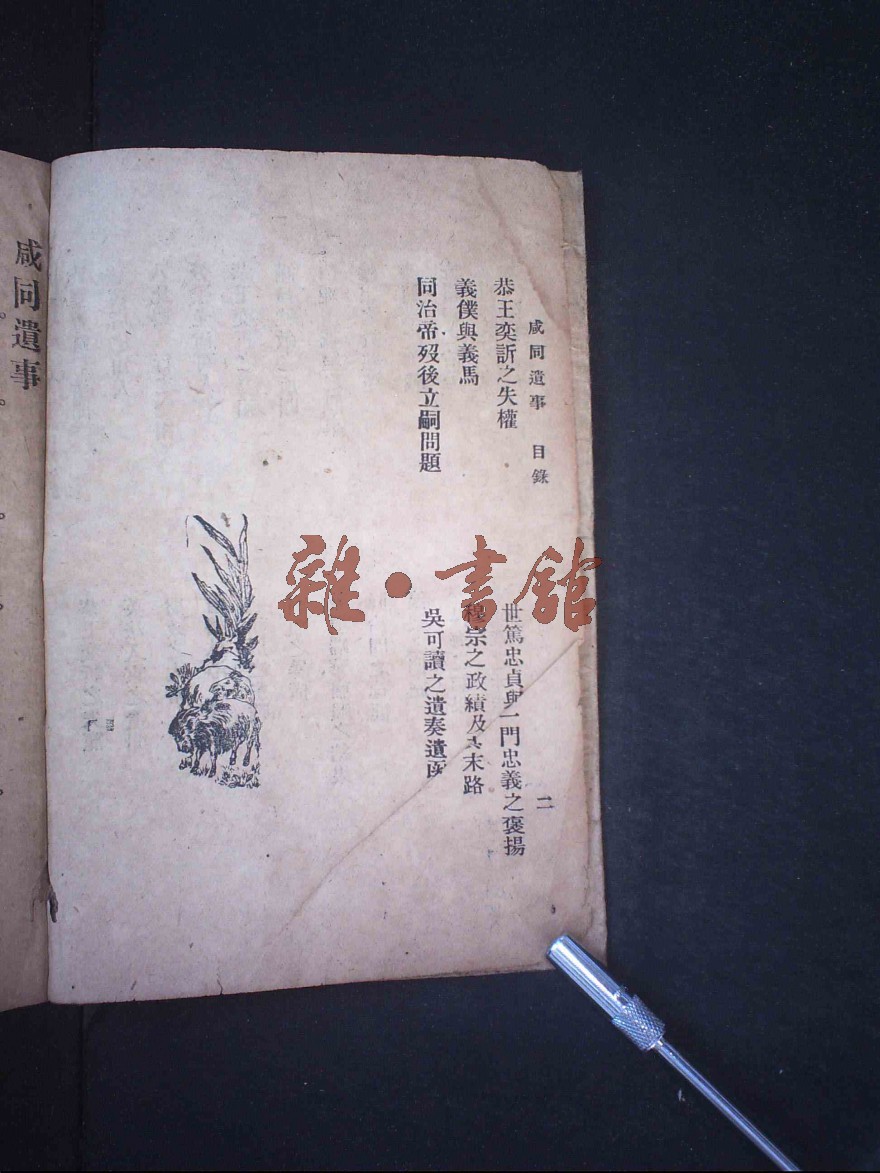 咸同遺事 目錄 二
恭王奕訢之失權 世篤忠貞與一門忠義之褒揚
義僕與義馬 穆宗之政績及其末路
同治帝歿後立嗣問題 吳可讀之遺奏遺函
咸同遺事
雜·書館